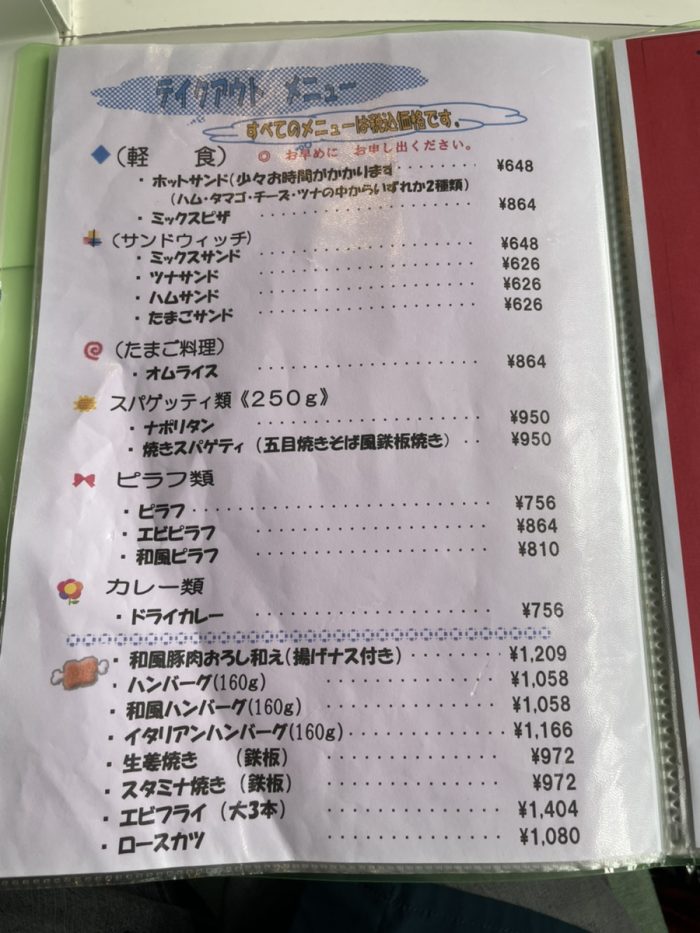 テイクアウト メニュー
すべてのメニューは税込価格です。
(軽 食) ◎ お早めに お申し出ください。
・ホットサンド(少々お時間がかかります ・・・・・・・・ ¥648
(ハム・タマゴ・チーズ・ツナの中からいずれか2種類)
・ミックスピザ ・・・・・・・・・・・・・・・・ ¥864
(サンドウィッチ)
・ミックスサンド ・・・・・・・・・・・・・・・・ ¥648
・ツナサンド ・・・・・・・・・・・・・・・・ ¥626
・ハムサンド ・・・・・・・・・・・・・・・・ ¥626
・たまごサンド ・・・・・・・・・・・・・・・・ ¥626
(たまご料理)
・オムライス ・・・・・・・・・・・・・・・・ ¥864
スパゲッティ類《250g》
・ナポリタン ・・・・・・・・・・・・・・・・ ¥950
・焼きスパゲティ(五目焼きそば風鉄板焼き) ・・ ¥950
ピラフ類
・ピラフ・・・・・・・・・・・・・・・・・・・・ ¥756
・エビピラフ ・・・・・・・・・・・・・・・・ ¥864
・和風ピラフ ・・・・・・・・・・・・・・・・ ¥810
カレー類
・ドライカレー ・・・・・・・・・・・・・・・・ ¥756
・和風豚肉おろし和え(揚げナス付き)・・・・・・・ ¥1,209
・ハンバーグ(160g) ・・・・・・・・・・・・ ¥1,058
・和風ハンバーグ(160g) ・・・・・・・・・・・・ ¥1,058
・イタリアンハンバーグ(160g)・・・・・・・・・・・ ¥1,166
・生姜焼き (鉄板) ・・・・・・・・・・・・ ¥972
・スタミナ焼き (鉄板) ・・・・・・・・・・・・ ¥972
・エビフライ (大3本) ・・・・・・・・・・・・ ¥1,404
・ロースカツ ・・・・・・・・・・・・ ¥1,080